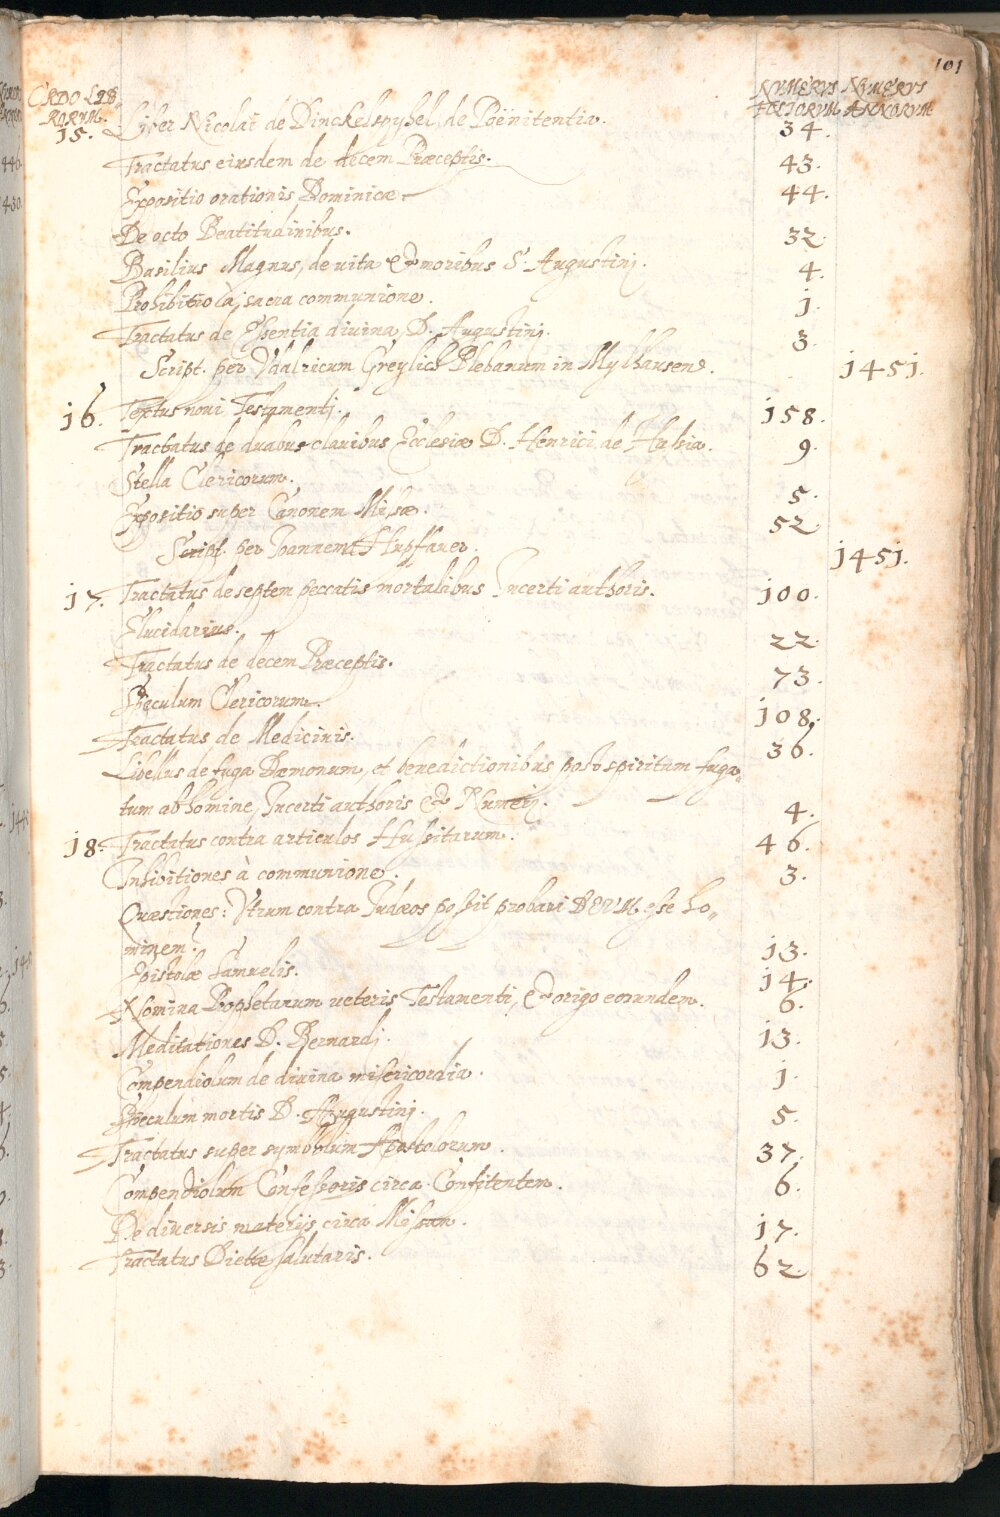 101
ORDO LIB,, NVMERVS NVMERVS
RORVM. FOLIORVM ANNORVM
15. Liber Nicolai de Dinckelspyhel, de Poënitentia. 34.
Tractatus eiusdem de decem Præceptis. 43.
Expositio orationis Dominicæ. 44.
De octo Beatitudinibus. 32
Basilius Magnus, de uita & moribus S. Augustinj. 4.
Prohibitio a sacra communione. j.
Tractatus de Essentia diuina, D. Augustinj. 3.
Script. per Vdalricum Greylich Plebanum in Mylhausen. 1451.
16. Textus noui Testamentj. 158.
Tractatus de duabus clauibus Ecclesiæ D. Henrici de Hassia. 9.
Stella Clericorum. 5.
Expositio super Canonem Missæ. 52
Script. per Joannem Hupfauer. 1451.
17. Tractatus de septem peccatis mortalibus Incerti authoris. 100.
Elucidarius. 22.
Tractatus de decem Præceptis. 73.
Speculum Clericorum. 108.
Tractatus de Medicinis. 36.
Libellus de fuga Dæmonum, et benedictionibus post spiritum fuga,,
tum ab homine, Incerti authoris & 4.
18. Tractatus contra articulos Hussitarum. 46.
Inhibitiones à communione. 3.
Quæstiones: Vtrum contra Judæos possit probari DEVM esse ho,,
minem? 13.
Epistolæ Samuelis. 14.
Nomina Prophetarum ueteris Testamenti, & origo eorundem. 6.
Meditationes D. Bernardj. 13.
Compendiolum de diuina misericordia. j.
Speculum mortis D. Augustinj. 5.
Tractatus super symbolum Apostolorum. 37.
Compendiolum Confessoris circa Confitentem. 6.
De diuersis materijs circa Missam. 17.
Tractatus Diettæ salutaris. 62.